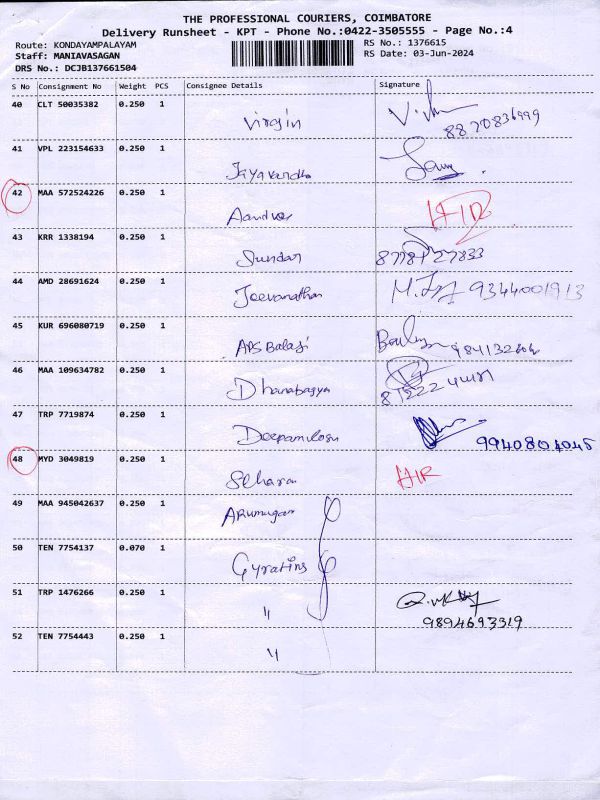 THE PROFESSIONAL COURIERS, COIMBATORE
Delivery Runsheet - KPT - Phone No.:0422-3505555 - Page No.:4
Route: KONDAYAMPALAYAM RS No.: 1376615
Staff: MANIAVASAGAN RS Date: 03-Jun-2024
DRS No.: DCJB137661504
S No Consignment No Weight PCS Consignee Details Signature
40 CLT 50035382 0.250 1 Virgin
8870836999
41 VPL 223154633 0.250 1
42 MAA 572524226 0.250 1
43 KRR 1338194 0.250 1 Sundar
44 AMD 28691624 0.250 1 Jeevanathan 9344001913
45 KUR 696080719 0.250 1 APS Balaji
46 MAA 109634782 0.250 1
47 TRP 7719874 0.250 1
9940804045
48 MYD 3049819 0.250 1
49 MAA 945042637 0.250 1 Arumugam
50 TEN 7754137 0.070 1
51 TRP 1476266 0.250 1 "
9894693319
52 TEN 7754443 0.250 1 "